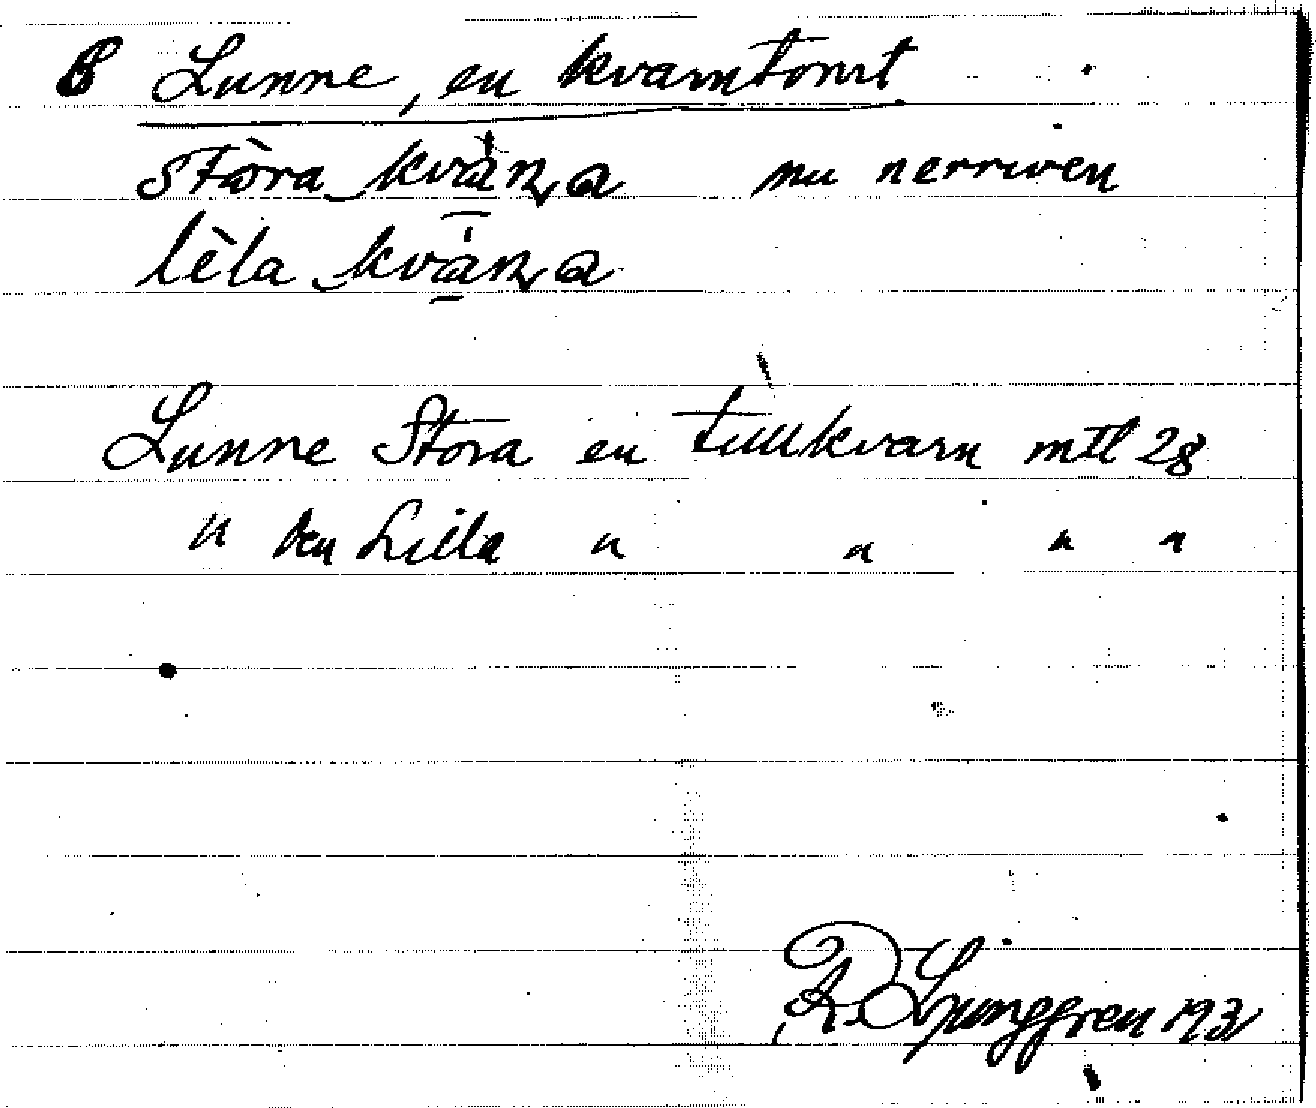 B Lunne, en kvarntomt
stòra kvàɳa nu nerriven
lèla kvàɳa
Lunne Stora en tullkvarn mtl 28
" den Lilla " " " "
R. Ljunggren